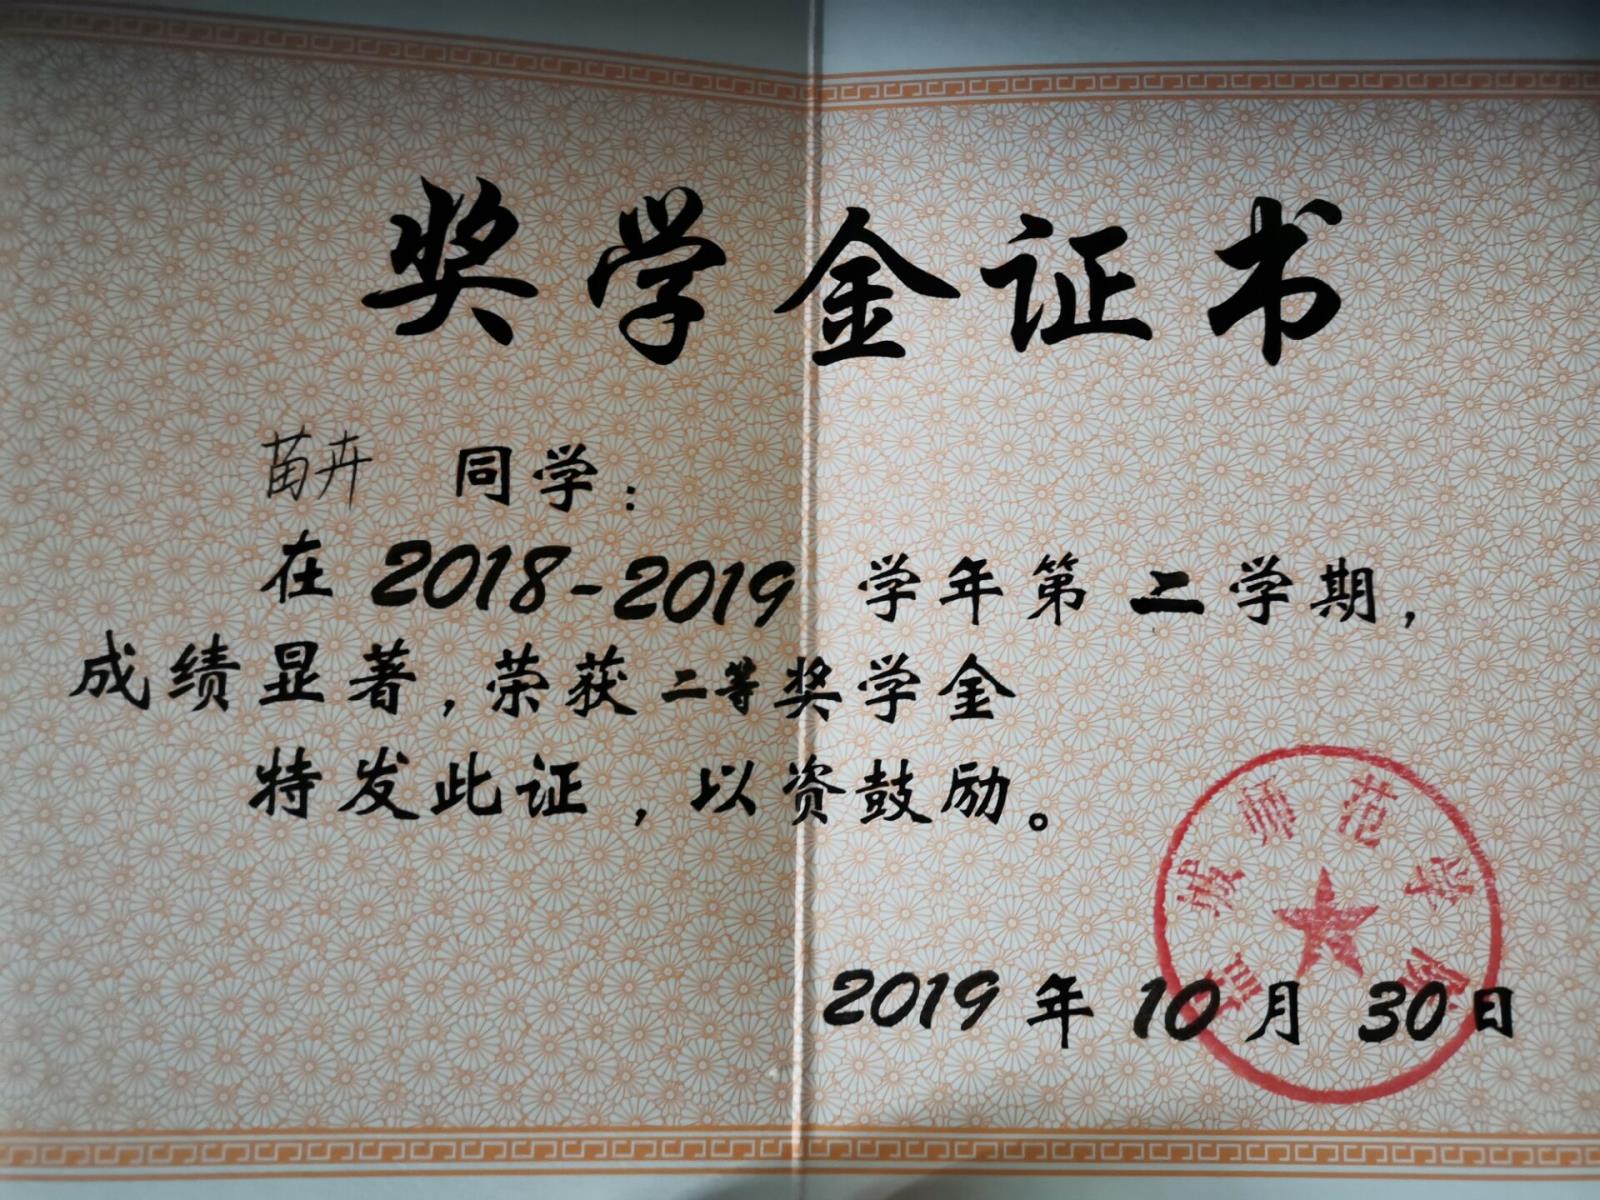 奖学金证书
苗卉 同学：
在 2018-2019 学年第 二 学期，
成绩显著，荣获 二等 奖学金
特发此证，以资鼓励。
师范学院
2019 年 10 月 30 日